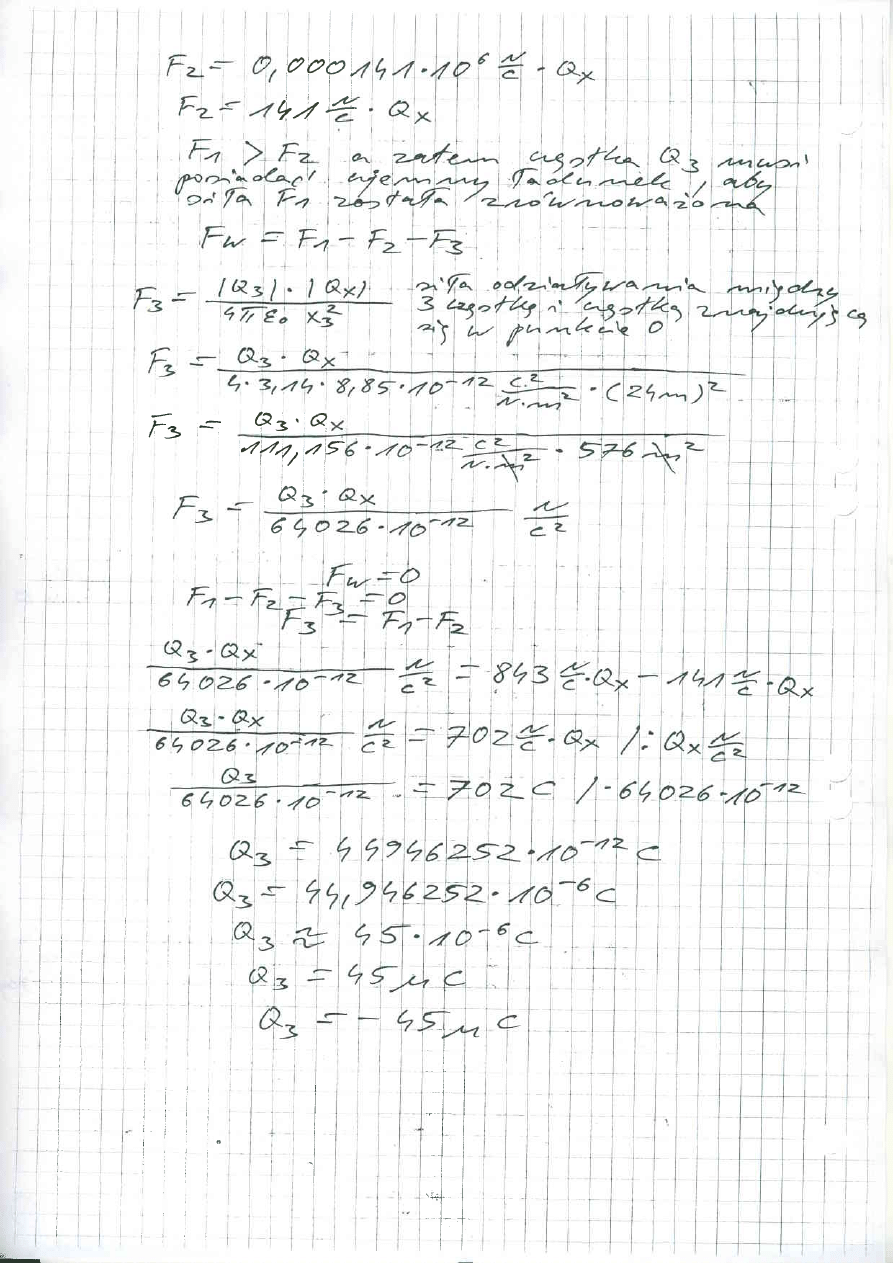 F₂ = 0,000141·10⁶ N/C · Qₓ
F₂ = 141 N/C · Qₓ
F₁ > F₂ a zatem cząstka Q₃ musi
posiadać ujemny ładunek, aby
siła F₁ została zrównoważona
Fw = F₁ − F₂ − F₃
F₃ = |Q₃|·|Qₓ| / 4πε₀ x₃² siła odziaływania między
3 cząstką i cząstką znajdującą
się w punkcie 0
F₃ = Q₃·Qₓ / 4·3,14·8,85·10⁻¹² C²/N·m² · (24m)²
F₃ = Q₃·Qₓ / 111,156·10⁻¹² C²/N·m² · 576 m²
F₃ = Q₃·Qₓ / 64026·10⁻¹² N/C²
Fw = 0
F₁ − F₂ − F₃ = 0
F₃ = F₁ − F₂
Q₃·Qₓ / 64026·10⁻¹² N/C² = 843 N/C·Qₓ − 141 N/C·Qₓ
Q₃·Qₓ / 64026·10⁻¹² N/C² = 702 N/C·Qₓ /: Qₓ N/C²
Q₃ / 64026·10⁻¹² = 702 C /·64026·10⁻¹²
Q₃ = 44946252·10⁻¹² C
Q₃ = 44,946252·10⁻⁶ C
Q₃ ≈ 45·10⁻⁶ C
Q₃ = 45 μC
Q₃ = −45 μC